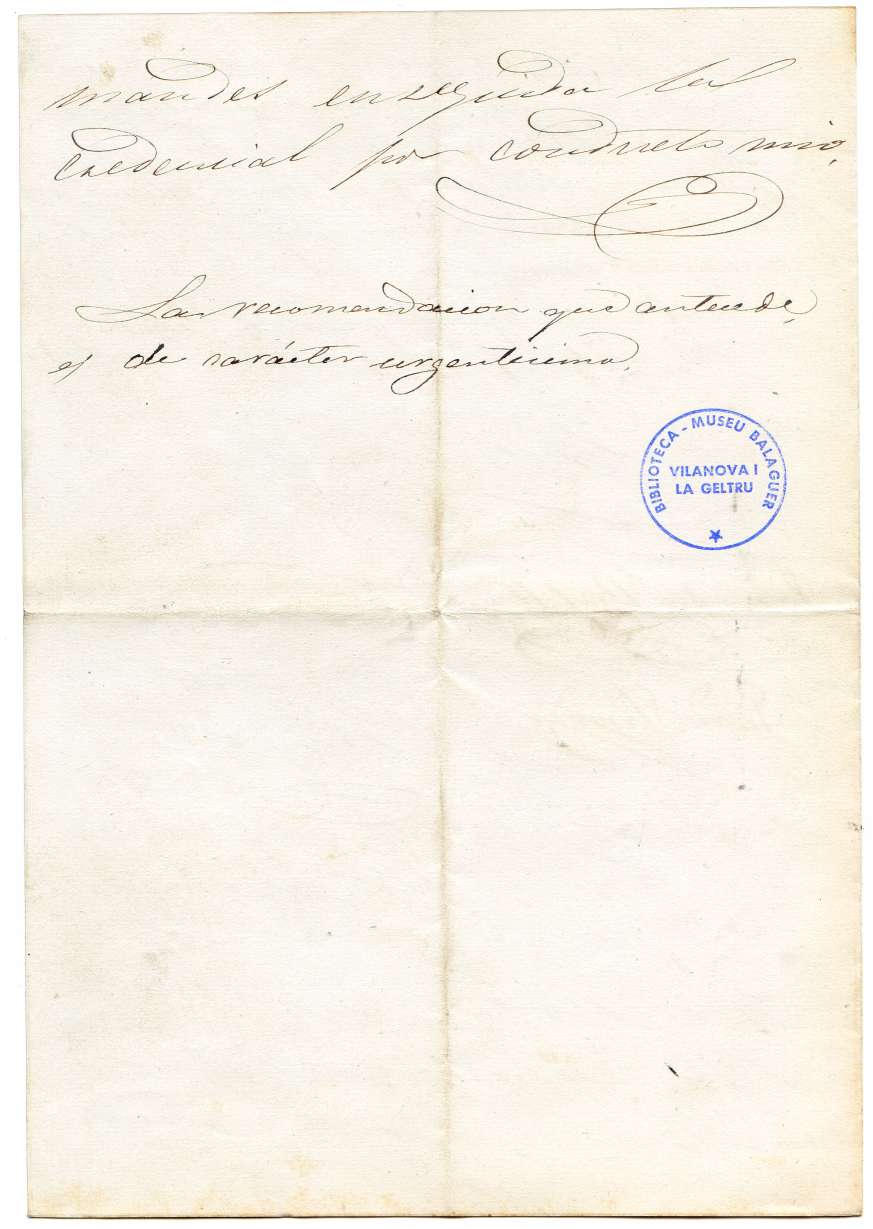 mandes enseguida la
credencial por conducto mio.
La recomendacion que antecede,
es de carácter urgentisimo.
BIBLIOTECA - MUSEU BALAGUER
VILANOVA I
LA GELTRU